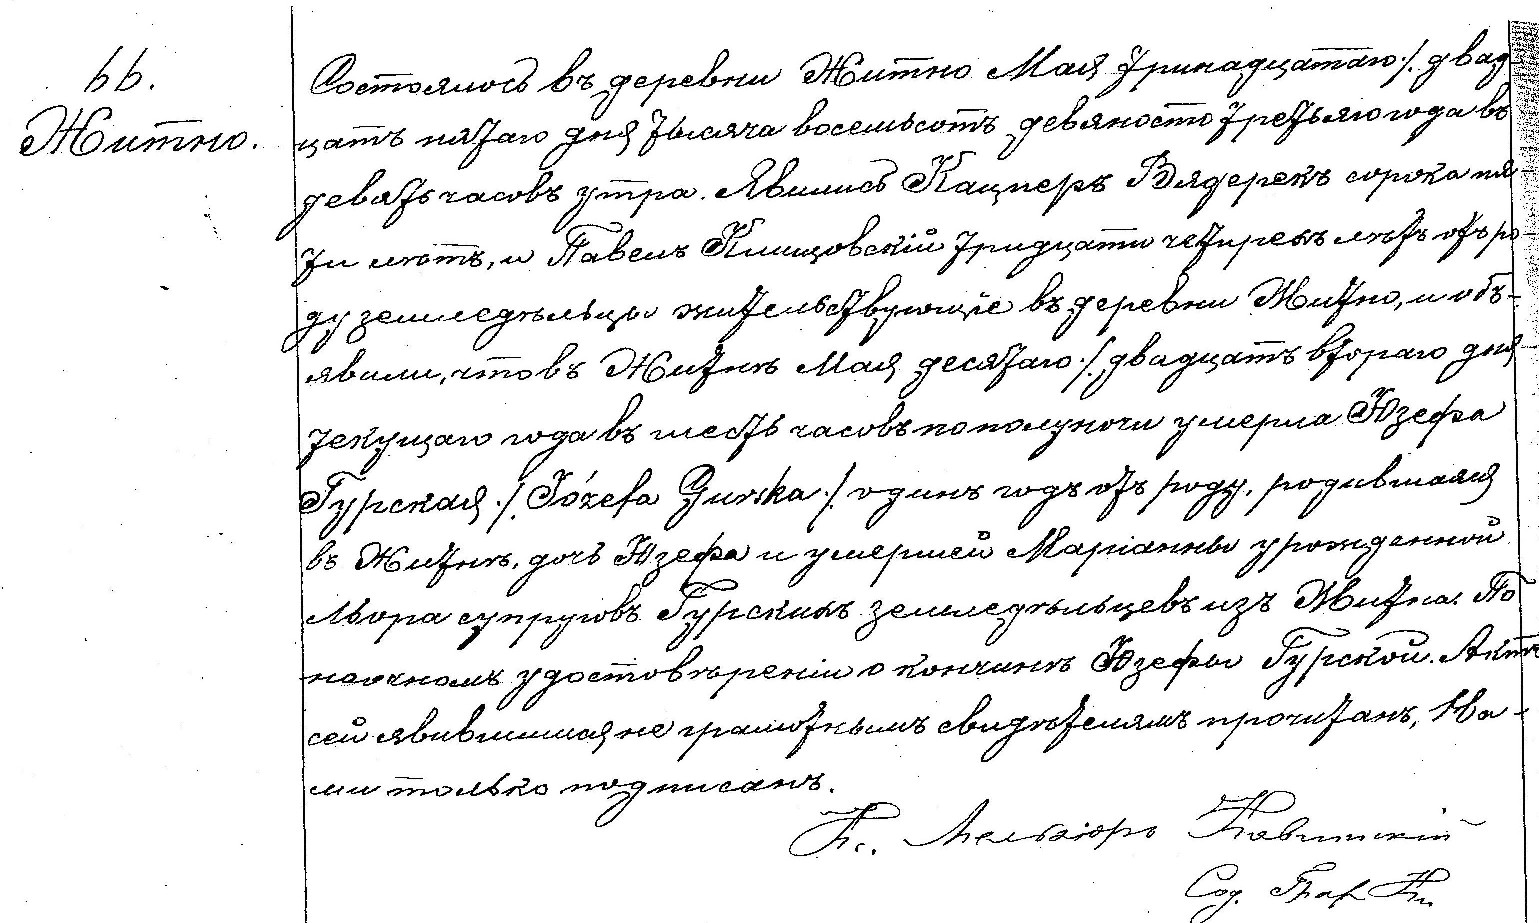 66.
Житно.
Состоялось въ деревни Житно Мая тринадцатаго /. двад
цать пятаго дня тысяча восемьсотъ девяносто третьяго года въ
девять часовъ утра. Явились Кацперъ Вядерекъ сорока пя-
ти лѣтъ, и Павелъ Климцовскій тридцати четырехъ лѣтъ отъ ро-
ду земледѣльцы жительствующіе въ деревни Житно, и объ-
явили, что въ Житнѣ Мая десятаго /. двадцать втораго дня
текущаго года въ шесть часовъ пополуночи умерла Юзефа
Гурская ./. Józefa Gurska ./. одинъ годъ отъ роду, родившаяся
въ Житнѣ, дочь Юзефа и умершей Маріанны урожденной
супруговъ Гурскихъ земледѣльцевъ изъ Житна. По
наочномъ удостовѣреніи о кончинѣ Юзефы Гурской. Актъ
сей явившимся не грамотнымъ свидѣтелямъ прочитанъ, На-
ми только подписанъ.
Кс. Мельхіоръ
Сод.